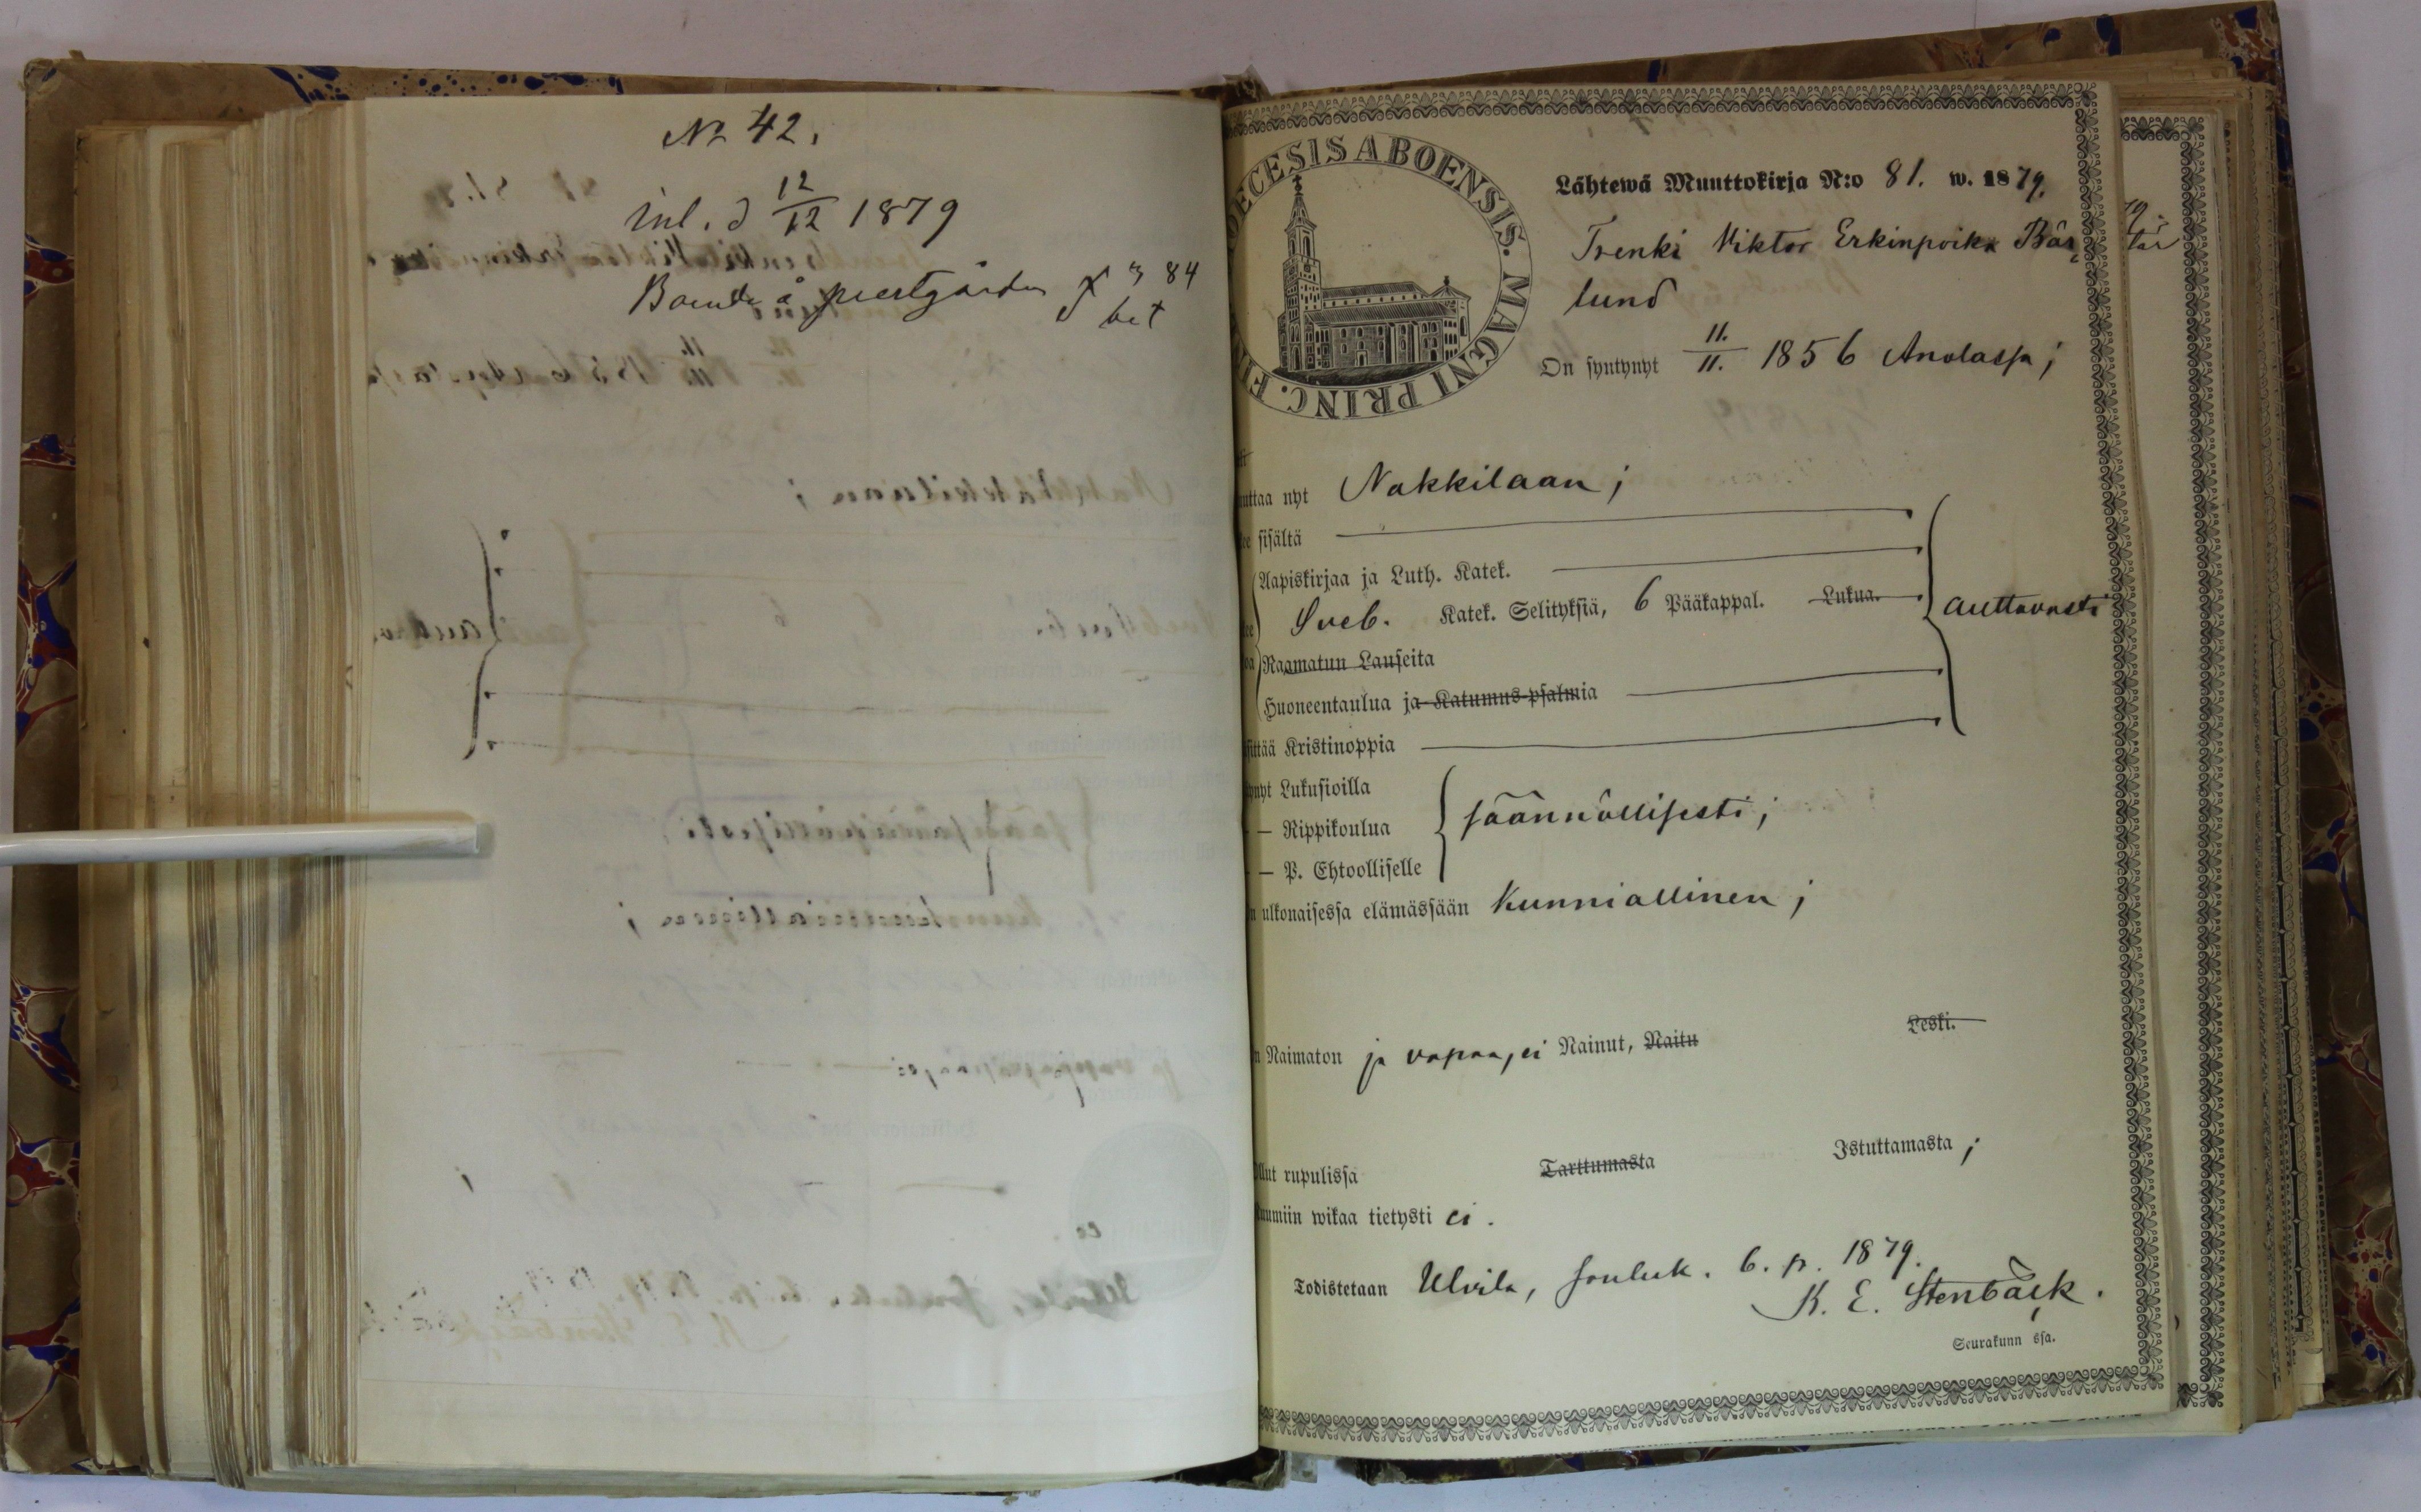 № 42.
inl. d 12/12 1879
Boende å prestgården
84
bet
DIOECESIS ABOENSIS. MAGNI PRINC. FI
Lähtewä Muuttokirja N:o 81. w. 1879.
Trenki Viktor Erkinpoika Bär,
lund
On syntynyt 11./11. 1856 Anolassa;
uttaa nyt Nakkilaan;
kee sisältä
Aapiskirjaa ja Luth. Katek.
Sveb. Katek. Selityksiä, 6 Pääkappal. Lukua.
auttavasti
Raamatun Lauseita
Huoneentaulua ja Katumus-psalmia
sittää Kristinoppia
ynyt Lukusioilla
— Rippikoulua
säännöllisesti;
— P. Ehtoolliselle
n ulkonaisessa elämässään kunniallinen;
n Naimaton ja vapaa, ei Nainut, Naitu Leski.
llut rupulissa Tarttumasta Istuttamasta;
uumiin wikaa tietysti ei.
Todistetaan Ulvila, Jouluk. 6. p. 1879.
K. E. Stenbäck.
Seurakunn ssa.